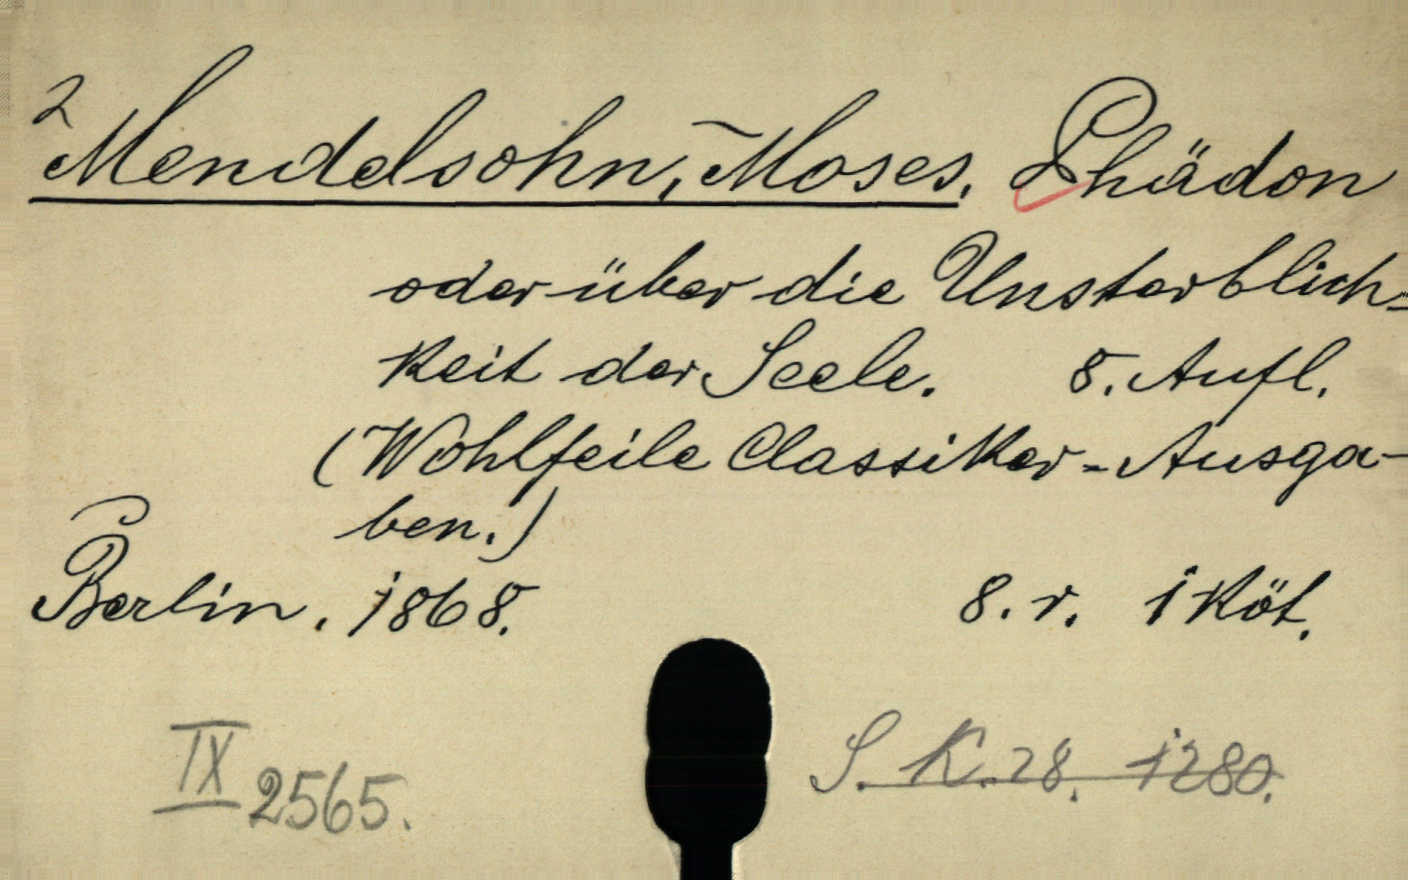 2
Mendelsohn, Moses. Phädon
oder über die Unsterblich=
keit der Seele. 8. Aufl.
(Wohlfeile Classiker-Ausga-
ben.)
Berlin, 1868. 8. r. 1 köt.
IX 2565. S. K. 28. 1280.